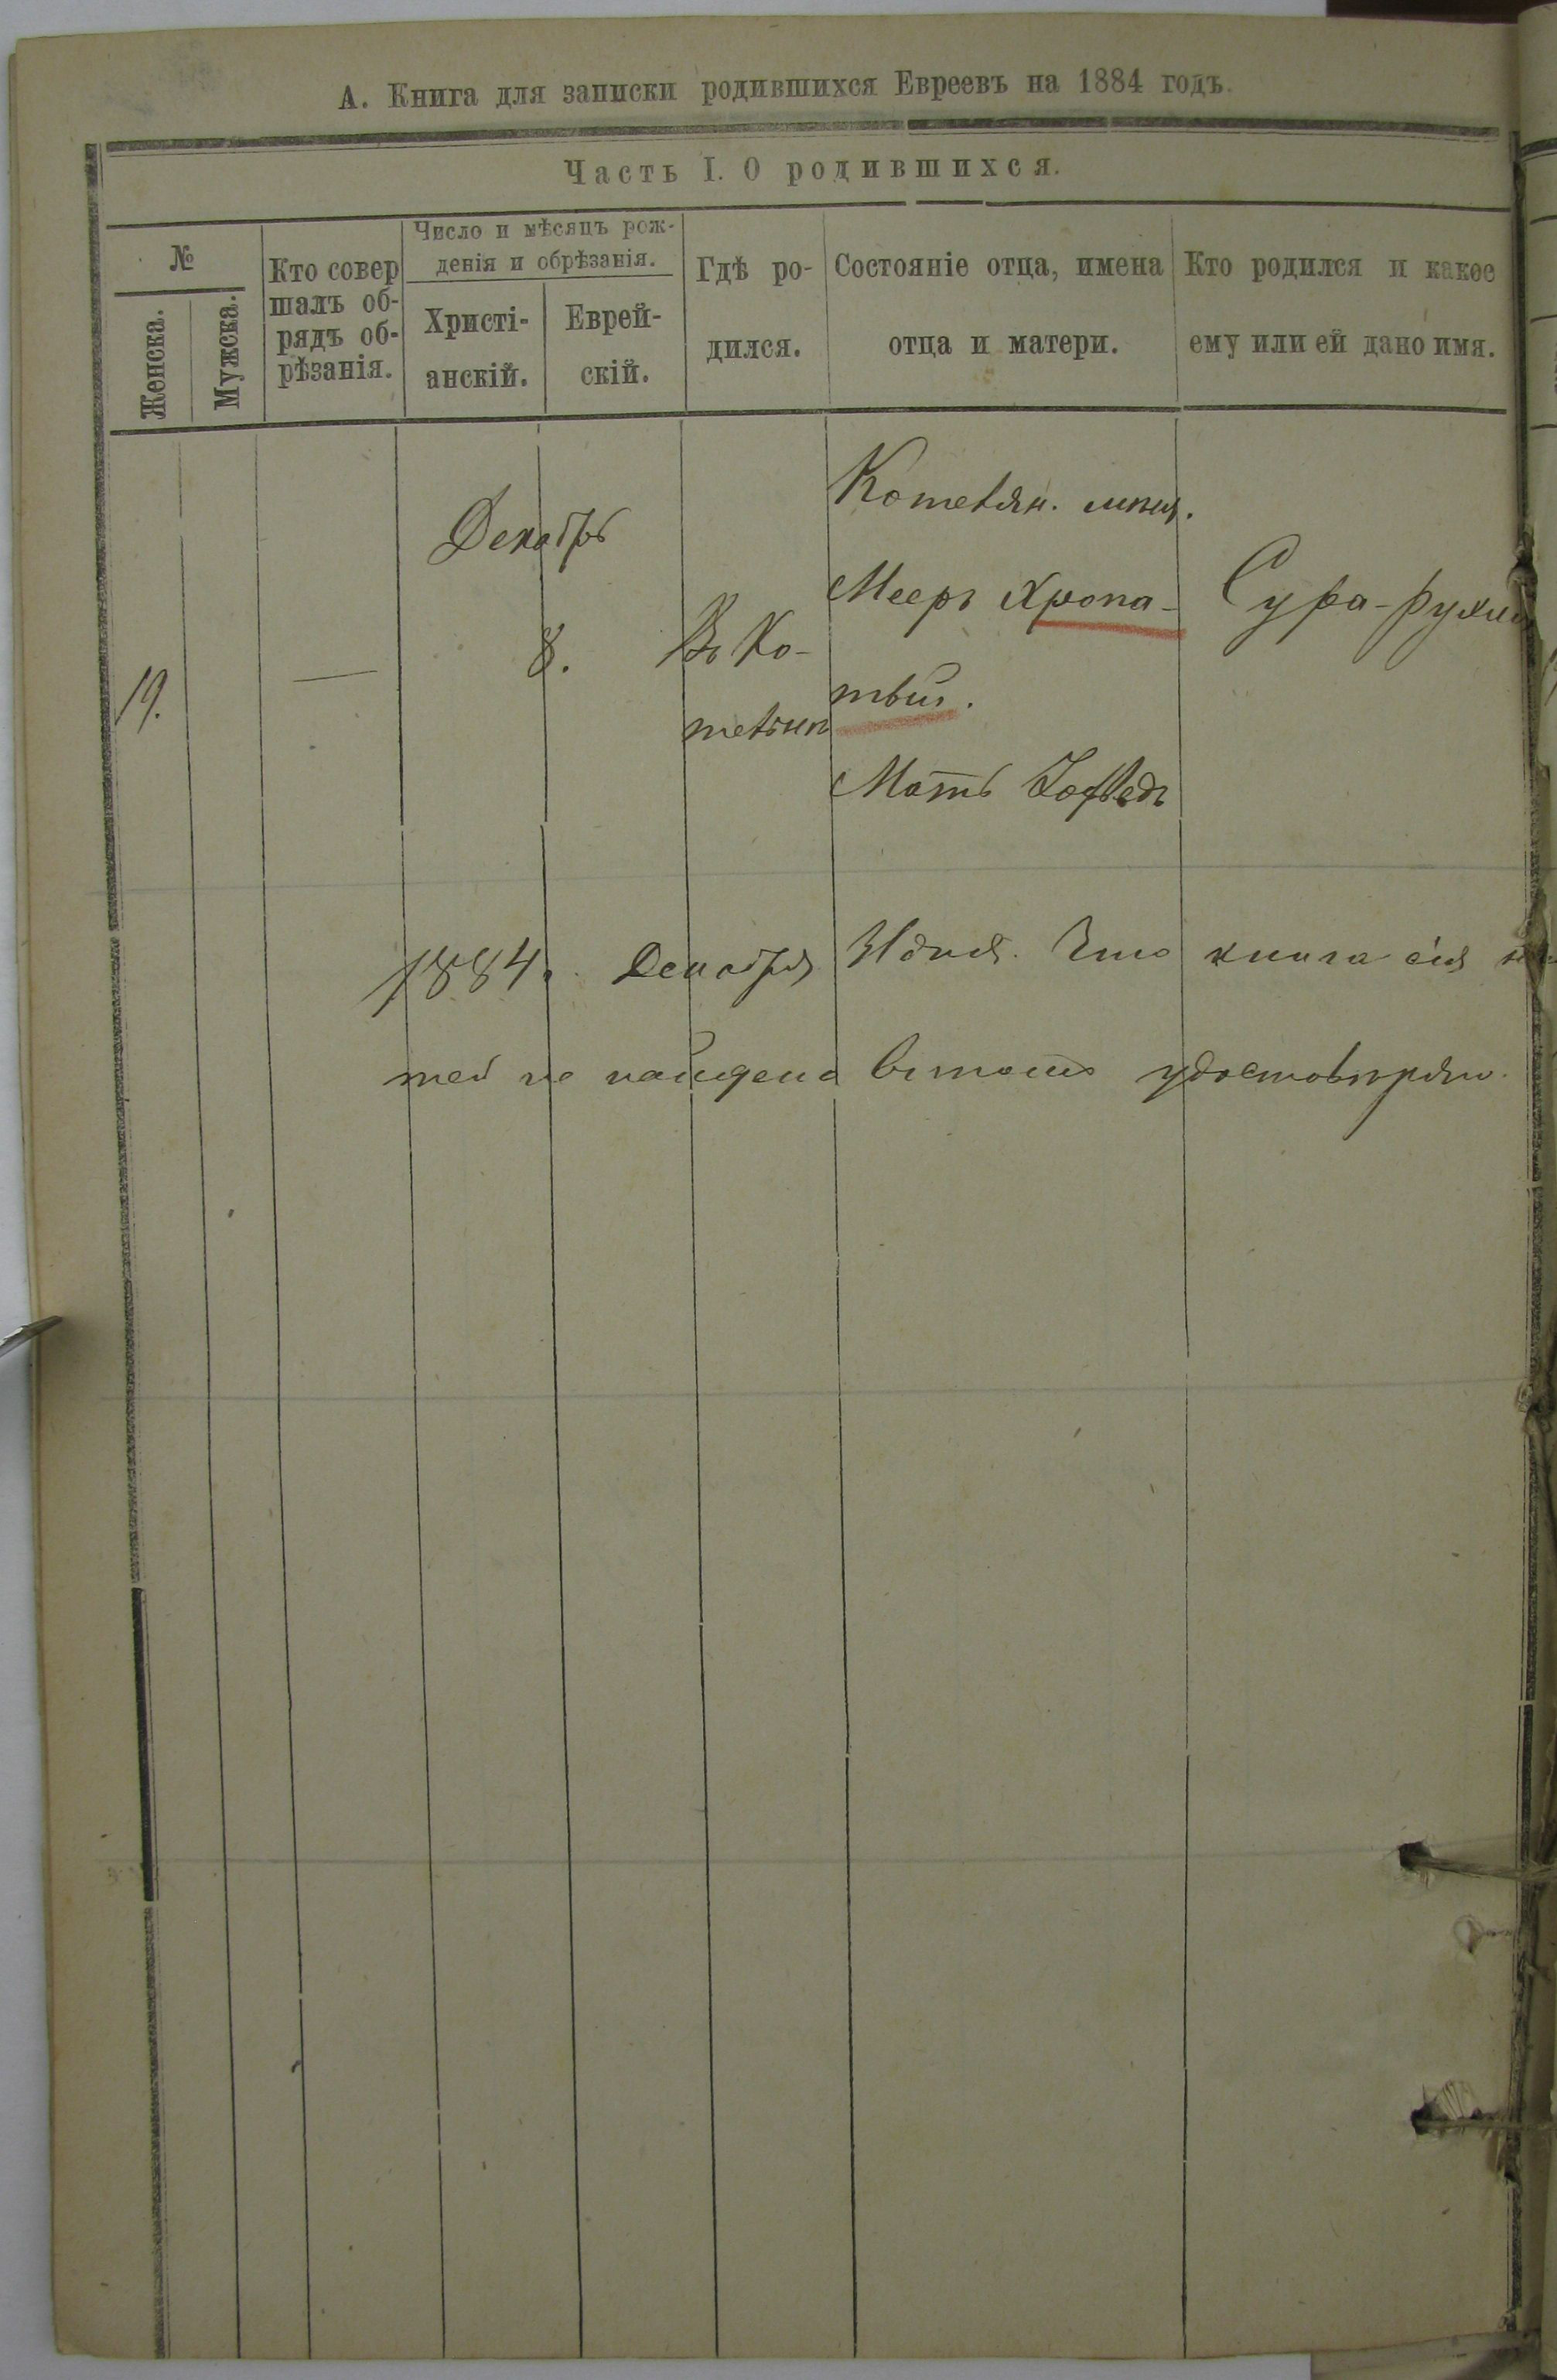 А. Книга для записки родившихся Евреевъ на 1884 годъ.
Часть I. О родившихся.
№
Женска.
Мужска.
Кто совер
шалъ об-
рядъ об-
рѣзанія.
Число и мѣсяцъ рож-
денія и обрѣзанія.
Христі-
анскій.
Еврей-
скій.
Гдѣ ро-
дился.
Состояніе отца, имена
отца и матери.
Кто родился и какое
ему или ей дано имя.
19.
—
Декабрь
8.
Въ Ко-
Мееръ Хропа-
тый.
Мать
Сура-
1884. Декабря Что книга сія
найдена въ томъ удостовѣряю.